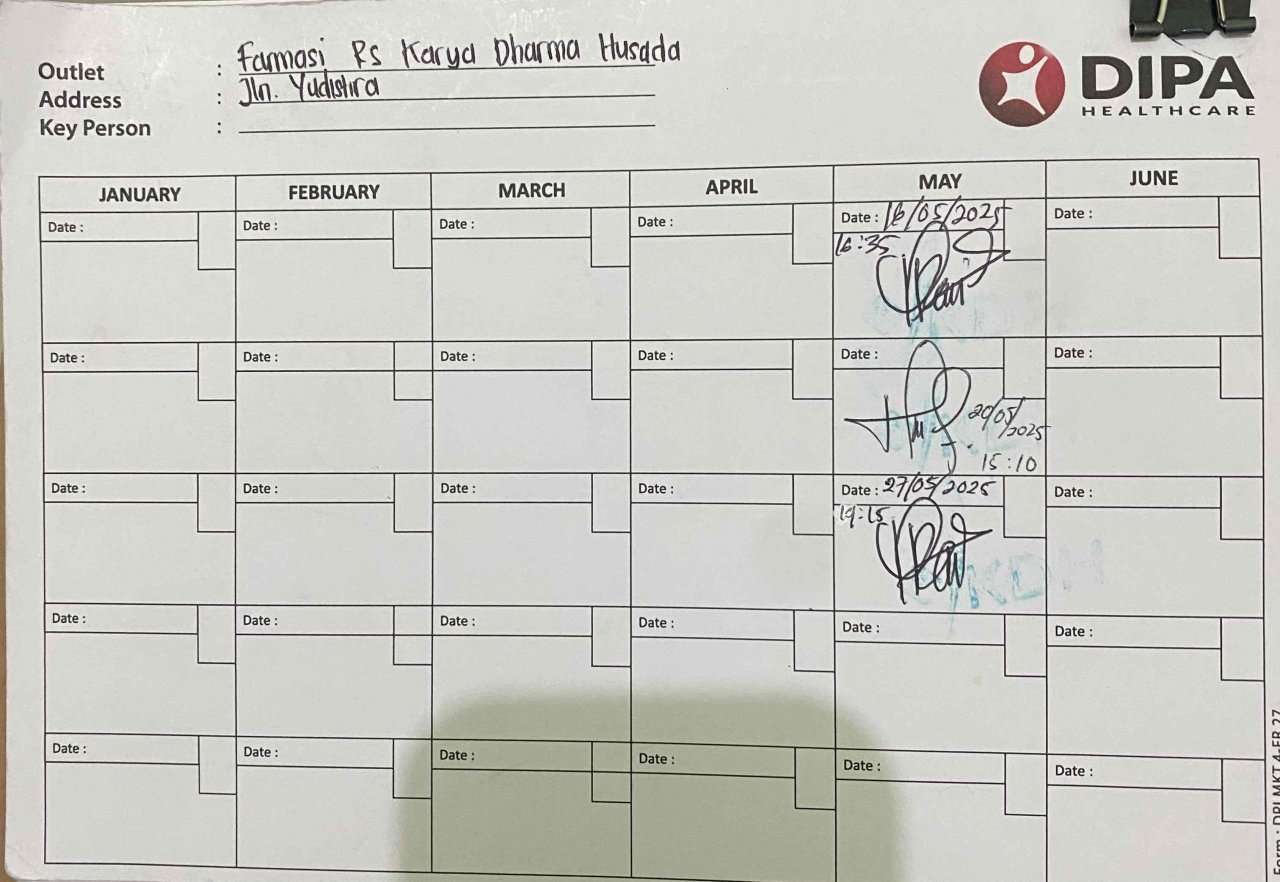 Outlet : Farmasi RS Karya Dharma Husada
Address : Jln. Yudistira
Key Person :
DIPA
HEALTHCARE
JANUARY FEBRUARY MARCH APRIL MAY JUNE
Date : Date : Date : Date : Date : 16/05/2025 Date :
16:35
Date : Date : Date : Date : Date : Date :
20/05/2025
15:10
Date : Date : Date : Date : Date : 27/05/2025 Date :
19:15
Date : Date : Date : Date : Date : Date :
Date : Date : Date : Date : Date : Date :
Form : DPI.MKT.4-FR.27